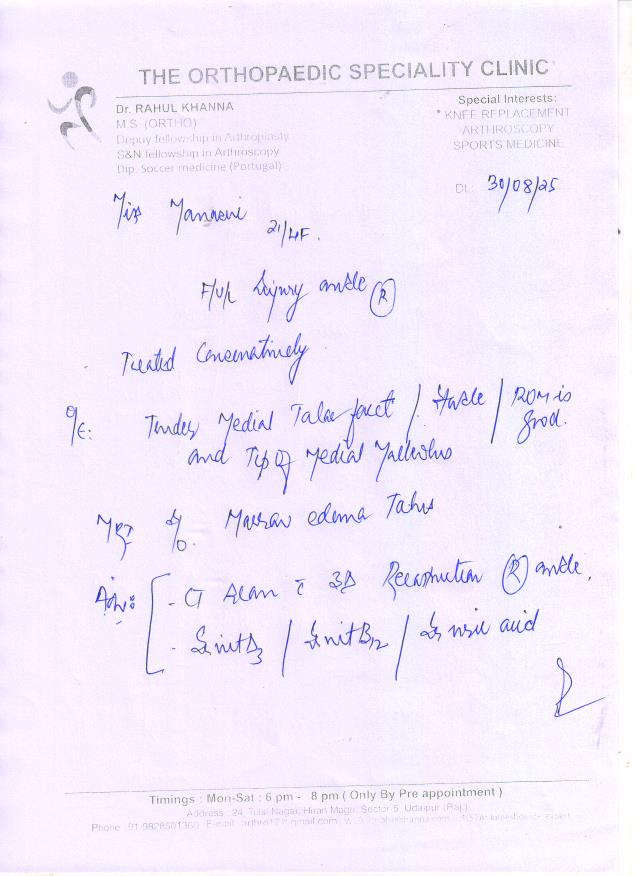 THE ORTHOPAEDIC SPECIALITY CLINIC
Dr. RAHUL KHANNA
M.S. (ORTHO)
Depuy fellowship in Arthroplasty
S&N fellowship in Arthroscopy
Dip. Soccer medicine (Portugal)
Special Interests:
* KNEE REPLACEMENT
ARTHROSCOPY
SPORTS MEDICINE
Dt.: 30/08/25
Miss
21/F.
F/U/C Injury ankle (R)
Treated Conservatively
O/E: Tender Medial Talar facet / Stable / ROM is good.
and Tip of Medial Malleolus
MRI s/o. Marrow edema Talus
Adv: - CT Scan c̄ 3D Reconstruction (R) ankle.
- Sr vit D3 / Sr vit B12 / Sr uric acid
Timings : Mon-Sat : 6 pm - 8 pm ( Only By Pre appointment )
Address : 24, Tulsi Nagar, Hiran Magri, Sector 5, Udaipur (Raj.)
Phone : 91-9828501360 E-mail :